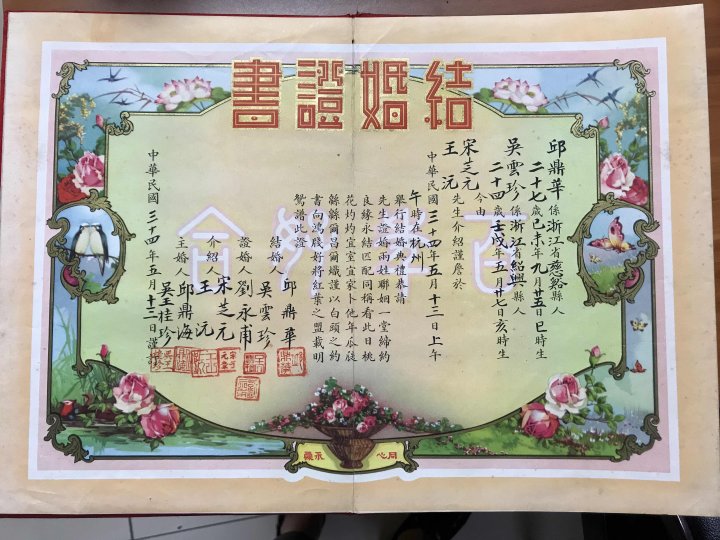 結婚證書
邱鼎華係浙江省慈谿縣人
二十七歲己未年九月廿五日巳時生
吳雲珍係浙江省紹興縣人
二十四歲壬戌年五月廿七日亥時生
今由
宋芝元
王沅
先生介紹謹詹於
中華民國三十四年五月十三日上午
午時在杭州
舉行結婚典禮恭請
先生證婚兩姓聯姻一堂締約
良緣永結匹配同稱看此日桃
花灼灼宜室宜家卜他年瓜瓞
緜緜爾昌爾熾謹以白頭之約
書向鴻牋好將紅葉之盟載明
鴛譜此證
結婚人
邱鼎華
吳雲珍
證婚人劉永甫
介紹人
宋芝元
王沅
主婚人
邱鼎海
吳王桂珍
中華民國三十四年五月十三日謹訂
百年好合
同心
永藥